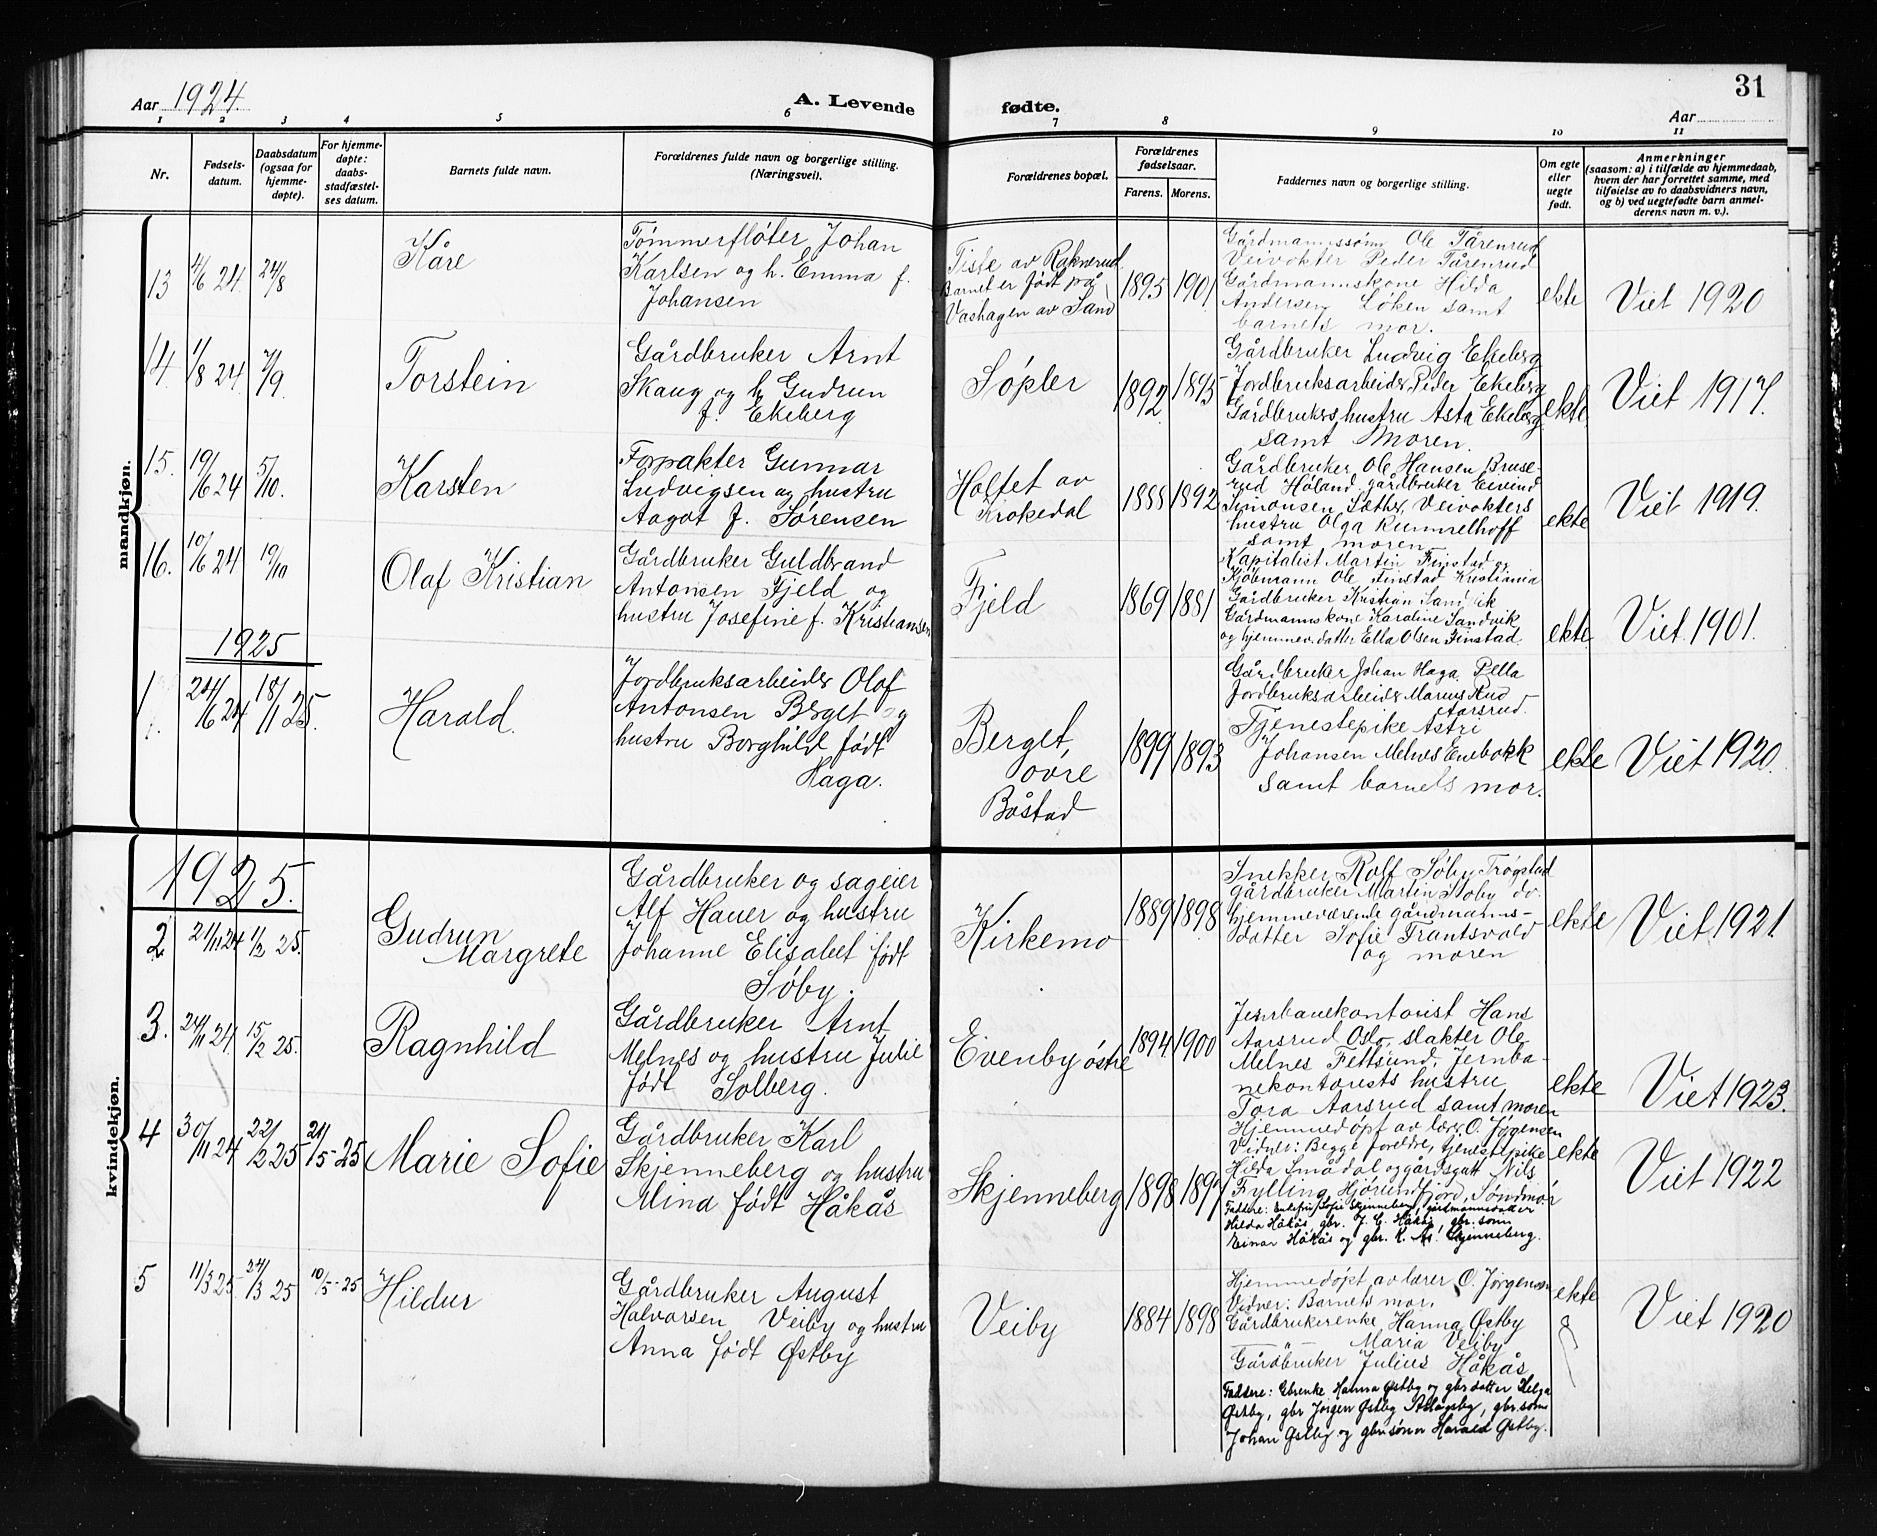 Aar 1924
A. Levende fødte.
31
Aar
1 2 3 4 5 6 7 8 9 10 11
Nr.
Fødsels-
datum.
Daabsdatum
(ogsaa for
hjemme-
døpte).
For hjemme-
døpte:
daabs-
stadfæstel-
ses datum.
Barnets fulde navn.
Forældrenes fulde navn og borgerlige stilling.
(Næringsvei).
Forældrenes bopæl.
Forældrenes
fødselsaar.
Farens. Morens.
Faddernes navn og borgerlige stilling.
Om egte
eller
uegte
født.
Anmerkninger
(saasom: a) i tilfælde av hjemmedaab,
hvem der har forrettet samme, med
tilføielse av to daabsvidners navn,
og b) ved uegtefødte barn anmel-
derens navn m. v.).
mandkjøn.
13 4/6 24. 24/8
Kåre
Tømmerfløter Johan
Karlsen og h. Emma f.
Johansen
Tiste av Raknerud
Barnet er født på
Vashagen av Sand
1895 1901
Gårdmannssønn Ole Tårenrud
Veivokter Peder Tårenrud
Gårdmannskone Hilda
Andersen Løken samt
barnets mor.
ekte
Viet 1920
14. 11/8 24. 7/9
Torstein
Gårdbruker Arnt
Skaug og h. Gudrun
f. Ekeberg
Søpler
1892 1895
Gårdbruker Ludvig Ekeberg
Jordbruksarbeider Peder Ekeberg
Gårdbrukershustru Asta Ekeberg
samt Moren.
ekte.
Viet 1917.
15. 19/6 24 5/10.
Karsten
Forpakter Gunnar
Ludvigsen og hustru
Aagot f. Sørensen
Holtet av
Krokedal
1888 1892
Gårdbruker Ole Hansen Bruse-
rud Høland, gårdbruker Eivind
Simonsen Sæther, Veivokters
hustru Olga Rummelhoff
samt moren
ekte
Viet 1919.
16. 10/6 24 19/10
Olaf Kristian
Gårdbruker Guldbrand
Antonsen Fjeld og
hustru Josefine f. Kristiansen
Fjeld
1869 1881
Kapitalist Martin Finstad og
Kjøbmann Ole Finstad Kristiania
Gårdbruker Kristian Sandvik
Gårdmannskone Karoline Sandvik
og hjemmev. datter Ella Olsen Finstad.
ekte.
Viet 1901.
1925
1. 24/6 24 18/1 25.
Harald.
Jordbruksarbeider Olaf
Antonsen Berget og
hustru Borghild født
Haga.
Berget,
øvre
Båstad
1899 1893
Gårdbruker Johan Haga
Jordbruksarbeider Marius Rud
Aarsrud.
Tjenestepike Astri
Johansen Melnes Enebakk
samt barnets mor.
ekte
Viet 1920.
kvindekjøn.
1925.
2 21/11 24 1/2 25.
Gudrun
Margrete
Gårdbruker og sageier
Alf Hauer og hustru
Johanne Elisabet født
Søby.
Kirkemo
1889 1898
Snekker Rolf Søby Trøgstad
gårdbruker Martin Søby do.
hjemmeværende gårdmanns-
datter Sofie Frantsvold
og moren
ekte
Viet 1921.
3. 24/11 24. 15/2 25.
Ragnhild
Gårdbruker Arnt
Melnes og hustru Julie
født Solberg.
Evenby østre
1894 1900
Jernbanekontorist Hans
Aarsrud Oslo, slakter Ole
Melnes Fettsund, Jernba-
nekontorists hustru
Tora Aarsrud samt moren
ekte
Viet 1923.
4 30/11 24 22/2 25 21/5-25
Marie Sofie
Gårdbruker Karl
Skjenneberg og hustru
Mina født Håkås
Skjenneberg
1898 1897
Hjemmedøpt av lærer O. Jørgensen
Vidner: Begge foreldre, tjenestepike
Hilda Smådal og gårdsgutt Nils
Fylling Hjørundfjord, Søndmør
Faddere: Enkefru Sofie Skjenneberg, gårdmannsdatter
Hilda Håkås, gbr. J. C. Håkås, gbr. sønn
Einar Håkås og gbr. K. As. Skjenneberg.
ekte
Viet 1922
5 11/3 25 24/3 25 10/5-25
Hildur
Gårdbruker August
Halvorsen Veiby og hustru
Anna født Østby
Veiby
1884 1898
Hjemmedøpt av lærer O. Jørgensen
Vidner: Barnets mor.
Gårdbrukerenke Hanna Østby
— " — Maria Veiby
Gårdbruker Julius Håkås
Faddere: Gbrenke Hanna Østby og gbr.datter Helga
Østby, gbr Jørgen Østby, gbr.sønn
Johan Østby og gbr.sønn Harald Østby.
ekte
Viet 1920